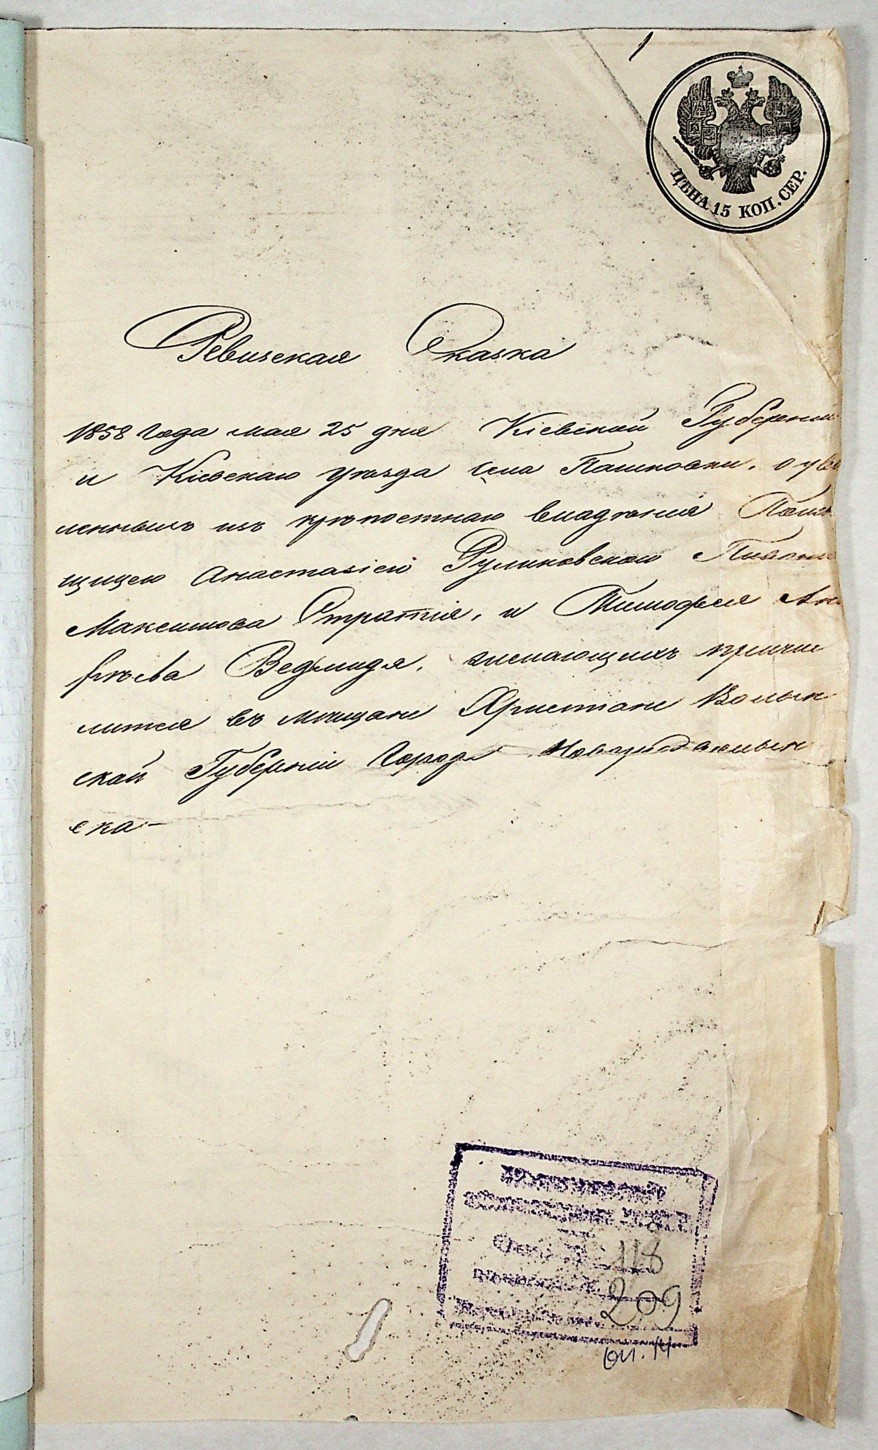 1
ЦѢНА 15 КОП. СЕР.
Ревизская Сказка
1858 года мая 25 дня Кіевской Губерніи
и Кіевскаго уѣзда села Пашковки, о уво
ленныхъ изъ крѣпостнаго владѣнія Помѣ
щицею Анастасіею Руликовскою
Максимова и Тимофея Ан
Ведмидя, желающихъ причис
лится въ мещани Христіане Волын
ской Губерніи Города Новградволын
ска
118
209
оп. 14